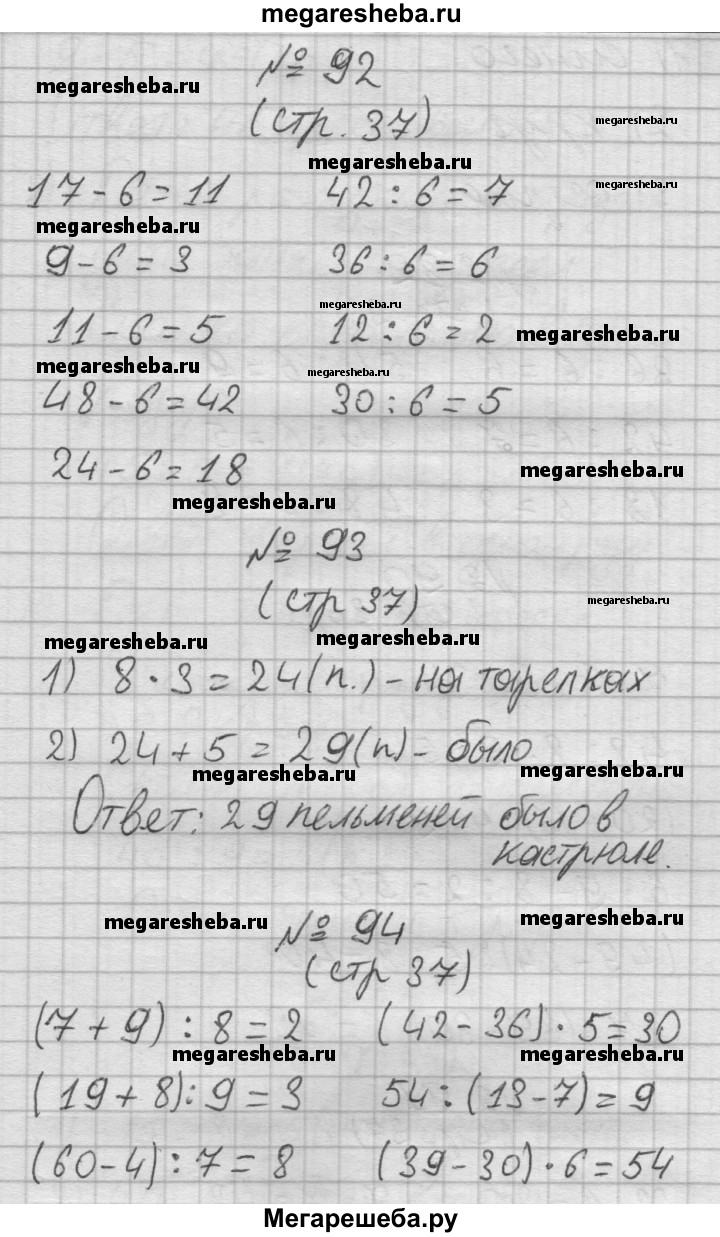 megaresheba.ru
№ 92
megaresheba.ru
(стр. 37)
megaresheba.ru
megaresheba.ru
17 - 6 = 11 42 : 6 = 7
megaresheba.ru
megaresheba.ru
9 - 6 = 3 36 : 6 = 6
megaresheba.ru
11 - 6 = 5 12 : 6 = 2
megaresheba.ru
megaresheba.ru
megaresheba.ru
48 - 6 = 42 30 : 6 = 5
24 - 6 = 18
megaresheba.ru
megaresheba.ru
№ 93
(стр 37)
megaresheba.ru
megaresheba.ru
megaresheba.ru
1) 8 · 3 = 24 (п.) - на тарелках
2) 24 + 5 = 29 (п) - было
megaresheba.ru
megaresheba.ru
Ответ: 29 пельменей было в
кастрюле.
megaresheba.ru
megaresheba.ru
№ 94
(стр 37)
(7 + 9) : 8 = 2 (42 - 36) · 5 = 30
megaresheba.ru
megaresheba.ru
(19 + 8) : 9 = 3 54 : (13 - 7) = 9
(60 - 4) : 7 = 8 (39 - 30) · 6 = 54
Мегарешеба.ру